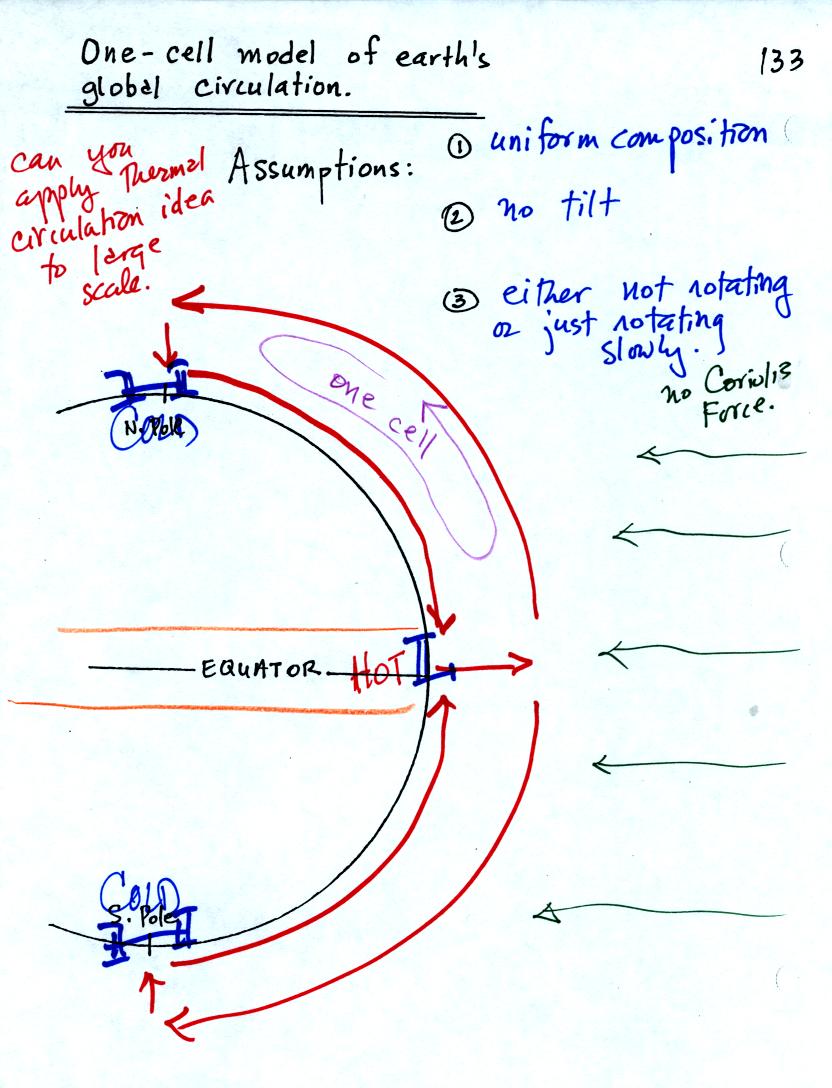 One-cell model of earth's
global circulation.
133
can you
apply thermal
circulation idea
to large
scale.
Assumptions:
① uniform composition
② no tilt
③ either not rotating
or just rotating
slowly.
no Coriolis
Force.
one cell
N. Pole
COLD
EQUATOR
HOT
COLD
S. Pole